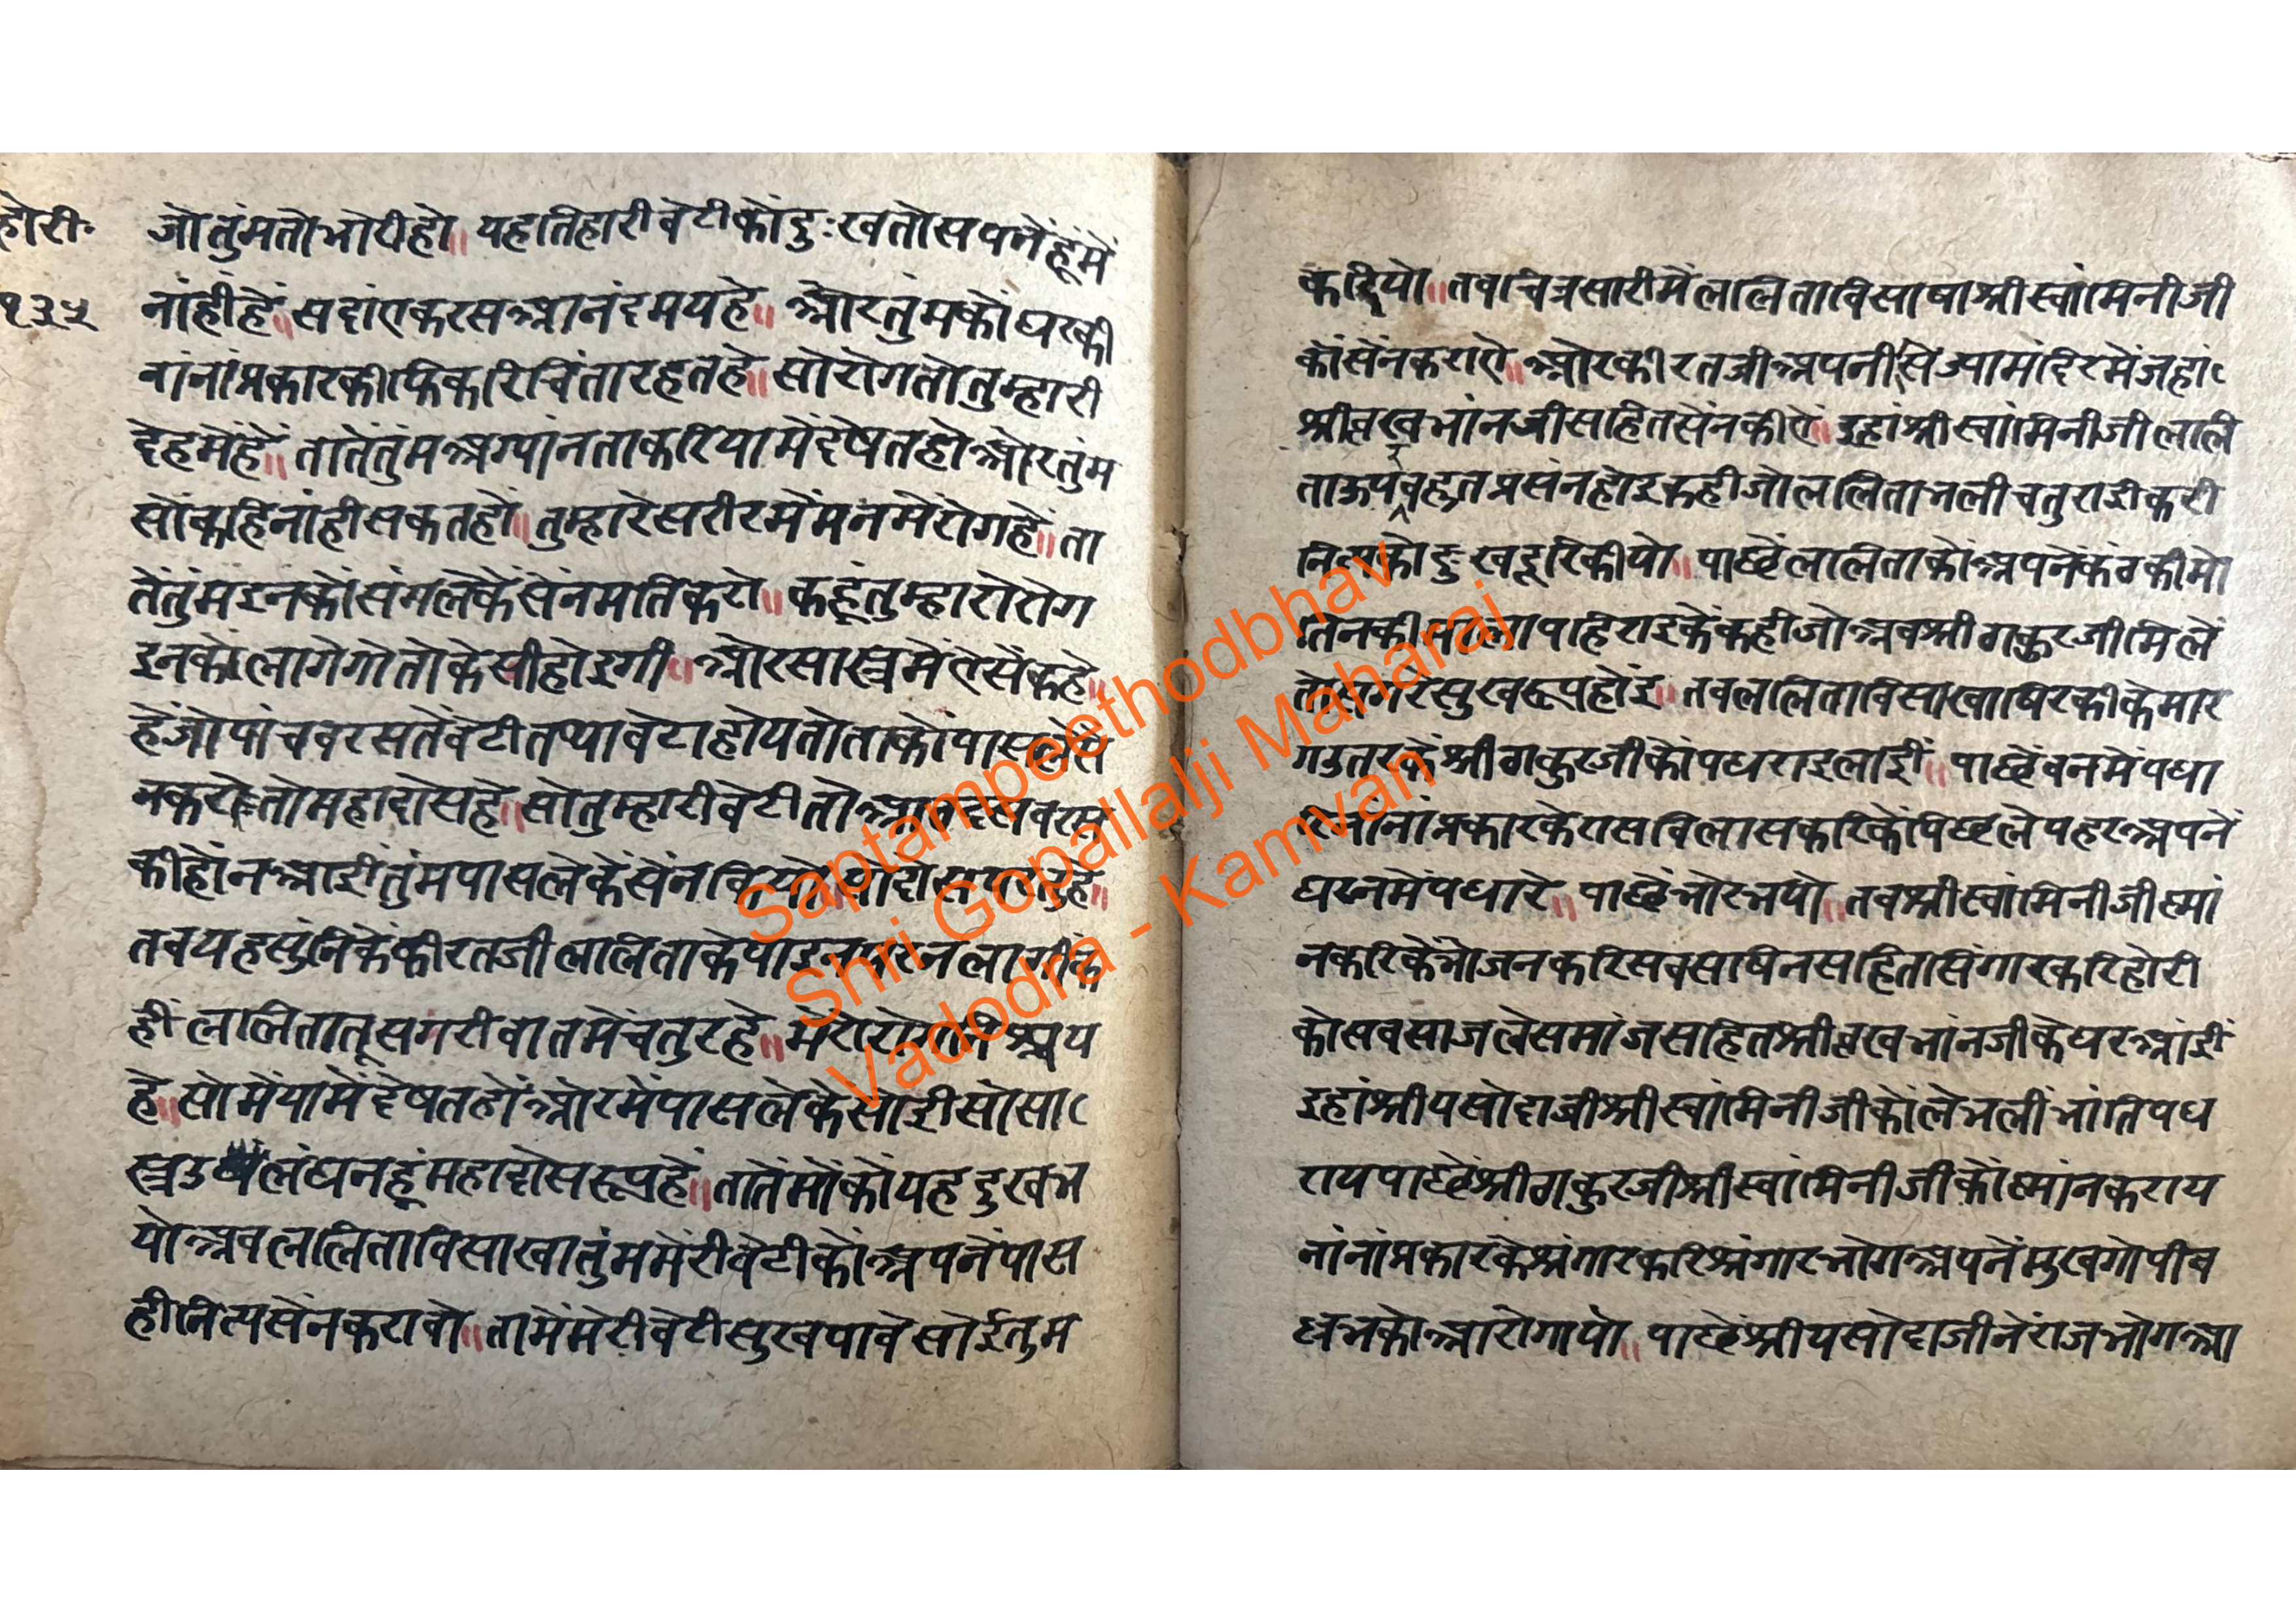 होरी॰
१३५
जोतुंमतोभोरीहो॥ यहतिहारीबेटीकोंदुःखतोसपनेंहूंमें
नांहींहें॥ सदांएकरसआनंदमयहे॥ ओरतुमकोंघरकी
नांनांप्रकारकीफिकरिचिंतारहतहे॥ सोरोगतोतुम्हारी
देहमेंहें॥ तातेंतुंमअग्यांनताकरियामेंदेषतहोओरतुंम
सोंकहिनांहीसकतहों॥ तुम्हारेसरीरमेंमनमेंरोगहे॥ ता
तेंतुंमइनकोंसंगलेकेंसेंनमतिकरो॥ कहूंतुम्हारोरोग
इनकोंलागेगोतोकेसीहोइगी॥ ओरसास्त्रमेंऐसेंकहे॥
हेंजोपांचवरसतेंबेटीतथाबेटाहोयतोताकोंपासलेसें
नकरेतोमहादोसहे॥ सोतुम्हारीबेटीतो
कीहोंनआईतुंमपासलेकेंसेंन
तबयहसुंनिकेंकीरतजीललिताकेपाइनपरनलागीक
हीललितातूसगरीबातमेंचतुरहे॥ मेरो
हे॥ सोमेंयामेंदेषतहोंओरमेंपासलेकेसोईसोसा
स्त्रउलंघनहूंमहादोसरूपहे॥ तातेंमोंकोंयहदुखभ
योअबललिताविसाखातुंममेरीबेटीकोंअपनेंपास
हीनित्यसेंनकरावो॥ तामेंमेरीबेटीसुखपावेसोईतुम
करियो॥ तबचित्रसारीमेंललिताविसाषाश्रीस्वांमिनीजी
कोंसेंनकराऐ॥ ओरकीरतजीअपनीसेज्यामंदिरमेंजहां
श्रीव्रखभांनजीसहितसेंनकीऐ॥ इहांश्रीस्वांमिनीजीललि
ताऊपरबहुतप्रसंनहोइकहीजोललिताभलीचतुराईकरी
दुखदूरिकीयो॥ पाछेंललिताकोंअपनेंकंठकीमो
तिनकीमालापहिराइकेंकहीजोअबश्रीठाकुरजीमिलें
तोसगरेसुखरूपहोंइ॥ तबललिताविसाखाषिरकीकेमार
गउतरकेंश्रीठाकुरजीकोंपधराइलाईं॥ पाछेंबनमेंपधा
रिनांनांप्रकारकेरासविलासकरिकेंपिछलेपहरअपनें
घरनमेंपधारे॥ पाछेंभोरभयो॥ तबश्रीस्वांमिनीजीस्नां
नकरिकेंभोजनकरिसबसषिनसहितसिंगारकरिहोरी
कोसबसाजलेसमांजसहितश्रीव्रखभांनजीकेघरआंईं
इहांश्रीयसोदाजीश्रीस्वांमिनीजीकोंलेभलींभांतिपध
रायपाछेंश्रीठाकुरजीश्रीस्वांमिनीजीकोंस्नांनकराय
नांनांप्रकारकेश्रंगारकरिश्रंगारभोगअपनेंमुखगोपीब
ल्लभकोआरोगायो॥ पाछेंश्रीयसोदाजीनेंराजभोगआ
Saptampeethodbhav
Shri Gopallalji Maharaj
Vadodra - Kamvan